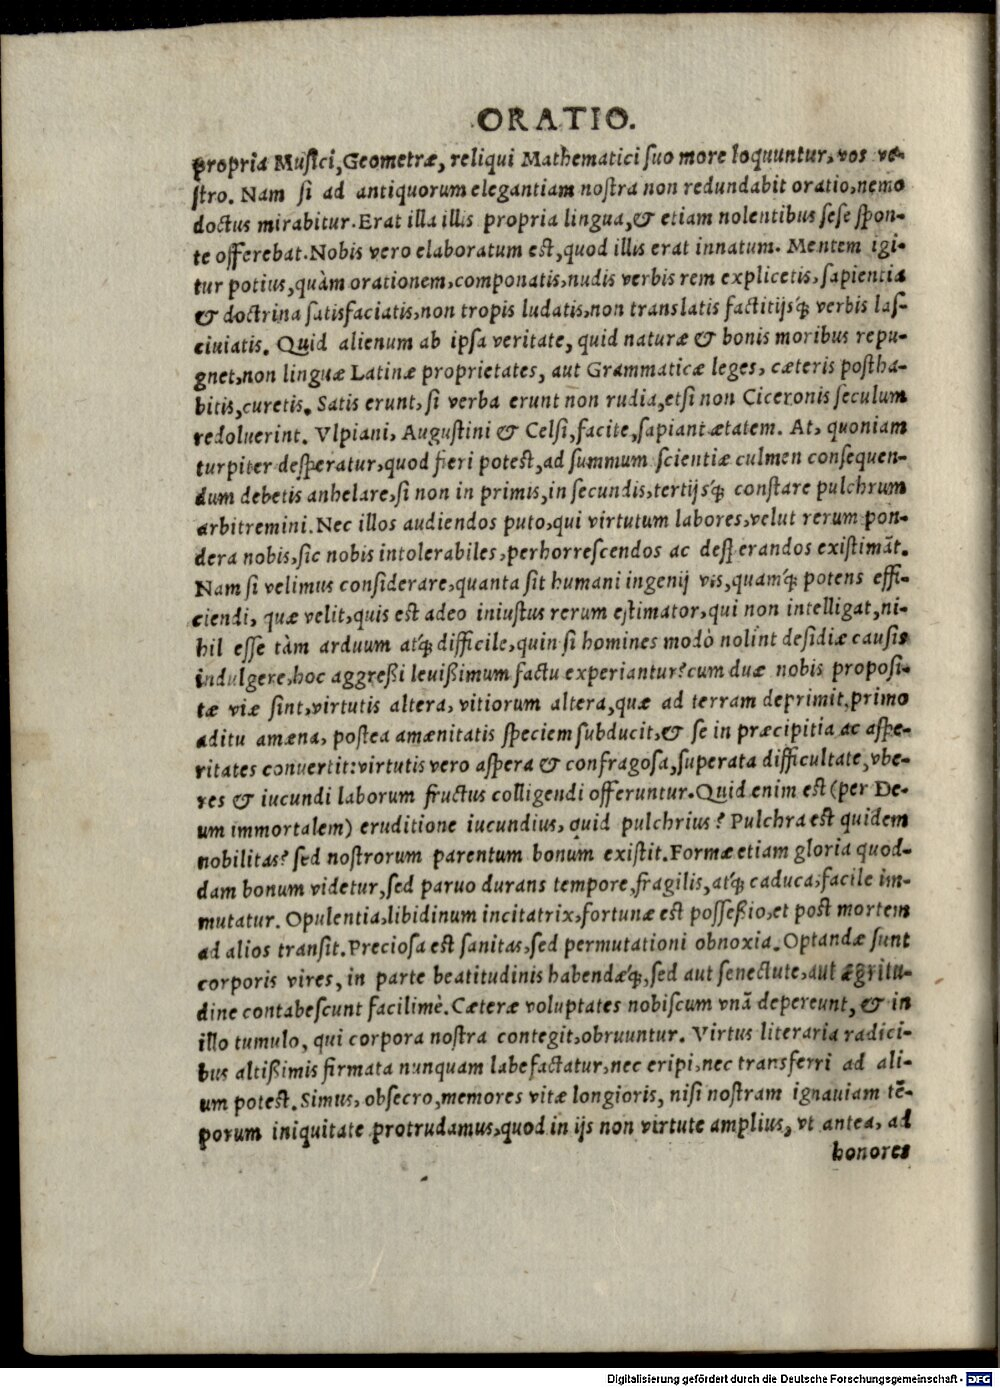 ORATIO.
propria Musici, Geometræ, reliqui Mathematici suo more loquuntur, vos ve-
stro. Nam si ad antiquorum elegantiam nostra non redundabit oratio, nemo
doctus mirabitur. Erat illa illis propria lingua, & etiam nolentibus sese spon-
te offerebat. Nobis vero elaboratum est, quod illis erat innatum. Mentem igi-
tur potius, quàm orationem, componatis, nudis verbis rem explicetis, sapientia
& doctrina satisfaciatis, non tropis ludatis, non translatis factitijsq́; verbis las-
ciuiatis. Quid alienum ab ipsa veritate, quid naturæ & bonis moribus repu-
gnet, non linguæ Latinæ proprietates, aut Grammaticæ leges, cæteris postha-
bitis, curetis. Satis erunt, si verba erunt non rudia, etsi non Ciceronis seculum
redoluerint. Vlpiani, Augustini & Celsi, facite, sapiant ætatem. At, quoniam
turpiter desperatur, quod fieri potest, ad summum scientiæ culmen consequen-
dum debetis anhelare, si non in primis, in secundis, tertijsq́; constare pulchrum
arbitremini. Nec illos audiendos puto, qui virtutum labores, velut rerum pon-
dera nobis, sic nobis intolerabiles, perhorrescendos ac desperandos existimãt.
Nam si velimus considerare, quanta sit humani ingenij vis, quamq́; potens effi-
ciendi, quæ velit, quis est adeo iniustus rerum estimator, qui non intelligat, ni-
hil esse tàm arduum atq́; difficile, quin si homines modò nolint desidiæ causis
indulgere, hoc aggreßi leuißimum factu experiantur? cum duæ nobis proposi-
tæ viæ sint, virtutis altera, vitiorum altera, quæ ad terram deprimit, primo
aditu amæna, postea amænitatis speciem subducit, & se in præcipitia ac aspe-
ritates conuertit: virtutis vero aspera & confragosa, superata difficultate, vbe-
res & iucundi laborum fructus colligendi offeruntur. Quid enim est (per De-
um immortalem) eruditione iucundius, quid pulchrius? Pulchra est quidem
nobilitas? sed nostrorum parentum bonum existit. Formæ etiam gloria quod-
dam bonum videtur, sed paruo durans tempore, fragilis, atq́; caduca, facile im-
mutatur. Opulentia, libidinum incitatrix, fortunæ est posseßio, et post mortem
ad alios transit. Preciosa est sanitas, sed permutationi obnoxia. Optandæ sunt
corporis vires, in parte beatitudinis habendæq́;, sed aut senectute, aut ægritu-
dine contabescunt facilimè. Cæteræ voluptates nobiscum vnâ depereunt, & in
illo tumulo, qui corpora nostra contegit, obruuntur. Virtus literaria radici-
bus altißimis firmata nunquam labefactatur, nec eripi, nec transferri ad ali-
um potest. Simus, obsecro, memores vitæ longioris, nisi nostram ignauiam tẽ-
porum iniquitate protrudamus, quod in ijs non virtute amplius, vt antea, ad
honores
Digitalisierung gefördert durch die Deutsche Forschungsgemeinschaft - DFG